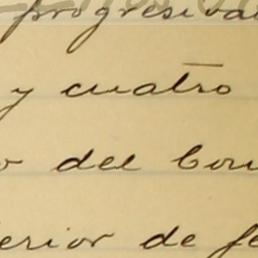 progresiva
y cuatro
o del con
erior de fe